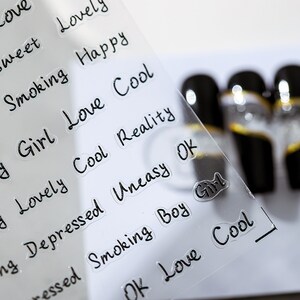 Love Lovely
Sweet Happy
Smoking Cool
Girl Love
Lovely Cool Reality
Depressed Uneasy OK
Smoking Boy Girl
OK Love Cool